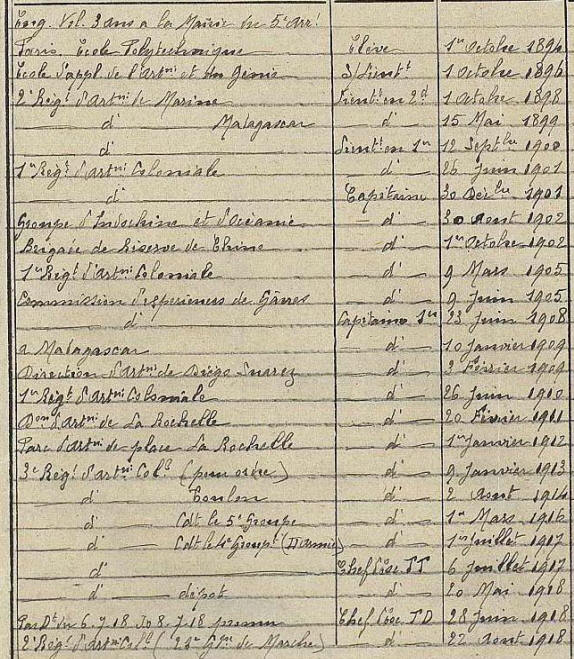 Eng. Vol. 3 ans a la Mairie du 5e Arrt
Paris. Ecole Polytechnique Elève 1er Octobre 1894
Ecole d'appl. de l'Artie et du Génie S/Lieutt 1 Octobre 1896
2e Régt d'Artie de Marine Lieutt en 2d 1 Octobre 1898
d° Madagascar d° 15 Mai 1899
Lieutt en 1er 12 Septbre 1900
1er Régt d'Artie Coloniale d° 26 Juin 1901
d° Capitaine 30 Décbre 1901
Groupe d'Indochine et d'Océanie d° 30 Aout 1902
Brigade de Réserve de Chine d° 1er Octobre 1902
1er Régt d'Artie Coloniale d° 9 Mars 1905
Commission d'expériences de Gâvres d° 9 Juin 1905
d° Capitaine 1er 23 Juin 1908
a Madagascar d° 10 Janvier 1909
Direction d'Artie de Diégo Suarez d° 3 Février 1909
1er Régt d'Artie Coloniale d° 26 Juin 1910
Don d'Artie de La Rochelle d° 20 Février 1911
Parc d'Artie de place La Rochelle d° 1er Janvier 1912
3e Régt d'Artie Cole (pour ordre) d° 9 Janvier 1913
d° Toulon d° 2 Aout 1914
d° Cdt le 5e Groupe d° 1er Mars 1916
d° Cdt le 4e Groupt (D'armée) d° 1er Juillet 1917
d° Chef d'Esc TT 6 Juillet 1917
d° dépot d° 20 Mai 1918
Par Dt du 6.7.18 JO 8.7.18 promu Chef d'Esc TD 28 Juin 1918
2e Régt d'Art Cole (21e de Marche) d° 22 Aout 1918